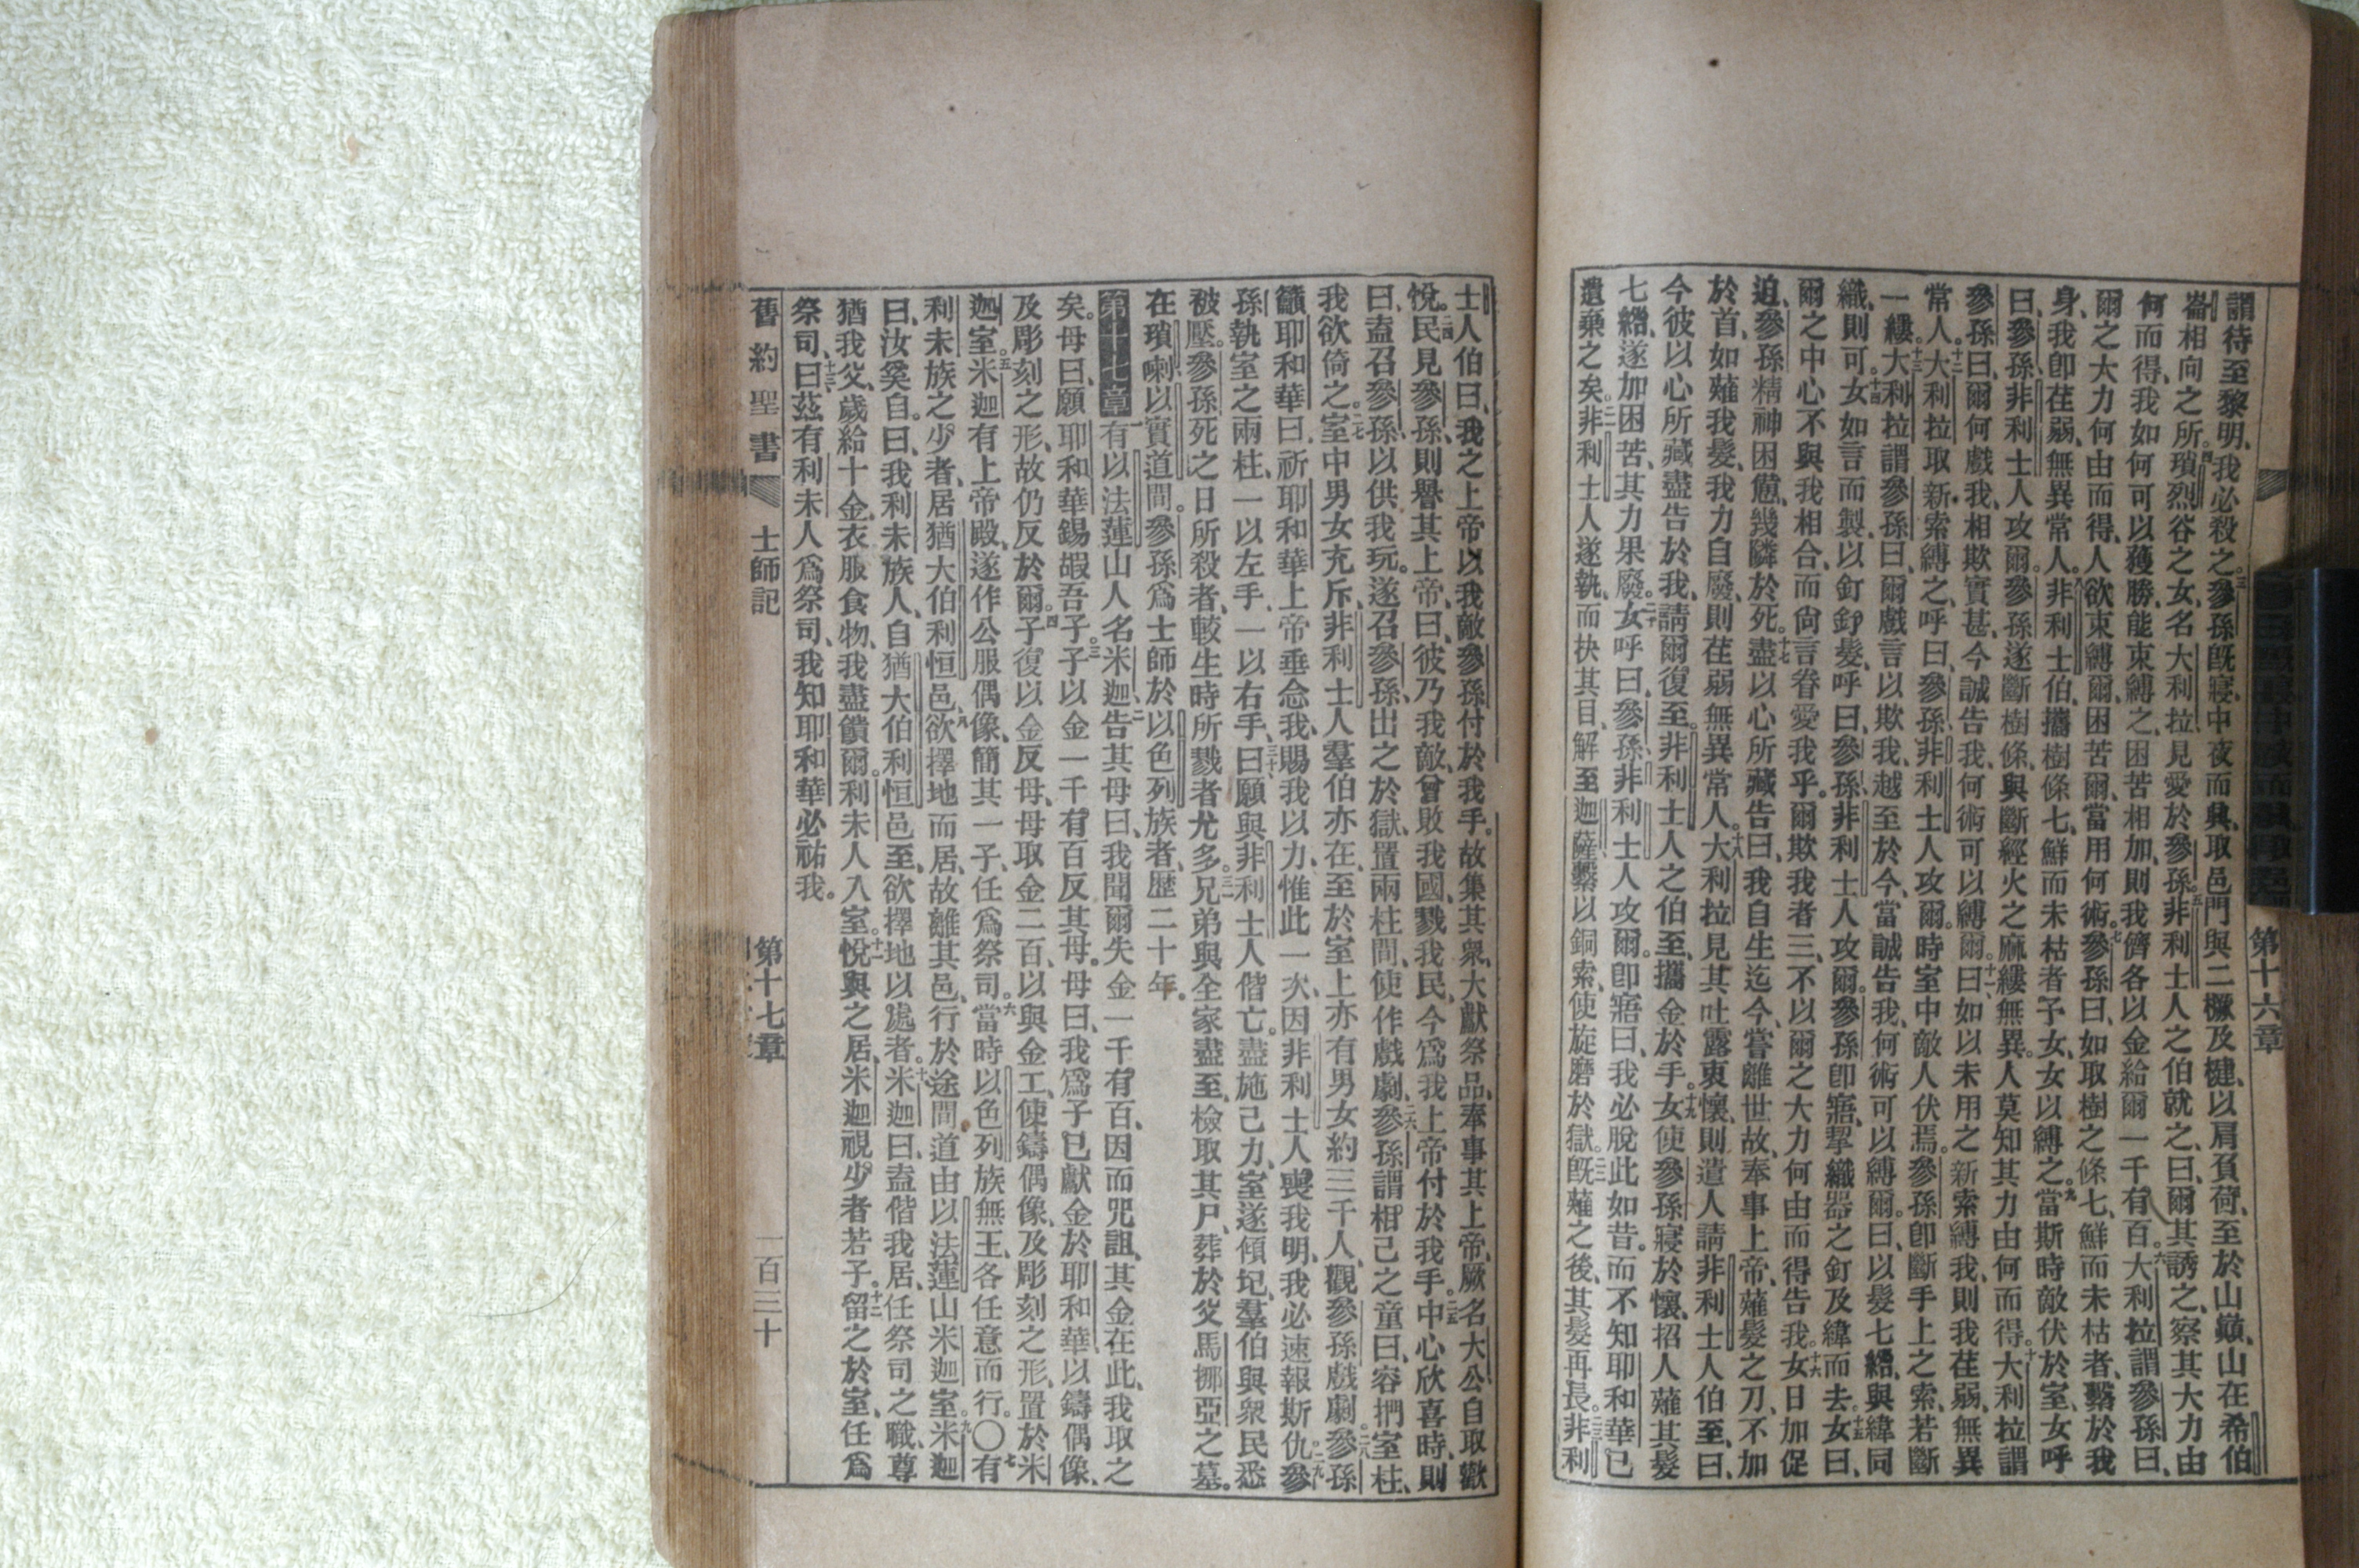 謂待至黎明、我必殺之。三參孫旣寢、中夜而興、取邑門與二橛及楗、以肩負荷、至於山巓、山在希伯
崙相向之所。四瑣烈谷之女、名大利拉、見愛於參孫。五非利士人之伯就之、曰、爾其誘之、察其大力由
何而得、我如何可以獲勝、能束縛之、困苦相加、則我儕各以金給爾一千有百。六大利拉謂參孫曰、
爾之大力何由而得、人欲束縛爾、困苦爾、當用何術。七參孫曰、如取樹之條七、鮮而未枯者、繫於我
身、我卽荏弱、無異常人。八非利士伯、攜樹條七、鮮而未枯者予女、女以縛之。九當斯時敵伏於室、女呼
曰、參孫、非利士人攻爾、參孫遂斷樹條、與斷經火之麻縷無異、人莫知其力由何而得。十大利拉謂
參孫曰、爾何戲我、相欺實甚、今誠告我、何術可以縛爾。十一曰、如以未用之新索縛我、則我荏弱、無異
常人。十二大利拉取新索縛之、呼曰、參孫、非利士人攻爾。時室中敵人伏焉。參孫卽斷手上之索、若斷
一縷。十三大利拉謂參孫曰、爾戲言以欺我、越至於今、當誠告我、何術可以縛爾。曰、以髮七綹、與緯同
織、則可。十四女如言而製、以釘釘髮、呼曰、參孫、非利士人攻爾。參孫卽寤、挈織器之釘及緯而去。十五女曰、
爾之中心不與我相合、而尙言眷愛我乎。爾欺我者三、不以爾之大力何由而得告我。十六女日加促
迫、參孫精神困憊、幾隣於死。十七盡以心所藏告曰、我自生迄今、嘗離世故、奉事上帝、薙髮之刀、不加
於首、如薙我髮、我力自廢、則荏弱無異常人。十八大利拉見其吐露衷懷、則遣人請非利士人伯至、曰、
今彼以心所藏盡告於我、請爾復至。非利士人之伯至、攜金於手。十九女使參孫寢於懷、招人薙其髮
七綹、遂加困苦、其力果廢。二十女呼曰、參孫、非利士人攻爾。卽寤曰、我必脫此如昔。而不知耶和華已
遺棄之矣。二一非利士人遂執、而抉其目、解至迦薩、繫以銅索、使旋磨於獄。二二旣薙之後、其髮再長。二三非利
第十六章
士人伯曰、我之上帝以我敵參孫付於我手。故集其衆、大獻祭品、奉事其上帝、厥名大公、自取歡
悅。二四民見參孫、則譽其上帝、曰、彼乃我敵、曾敗我國、戮我民、今爲我上帝付於我手。二五中心欣喜時、則
曰、盍召參孫以供我玩。遂召參孫、出之於獄、置兩柱間、使作戲劇、二六參孫謂相己之童曰、容捫室柱、
我欲倚之。二七室中男女充斥、非利士人羣伯亦在、至於室上、亦有男女約三千人、觀參孫戲劇。二八參孫
籲耶和華曰、祈耶和華上帝垂念我、賜我以力、惟此一次、因非利士人喪我明、我必速報斯仇。二九參
孫執室之兩柱、一以左手、一以右手、三十曰、願與非利士人偕亡。盡施己力、室遂傾圮、羣伯與衆民悉
被壓。參孫死之日所殺者、較生時所戮者尤多。三一兄弟與全家盡至、檢取其尸、葬於父馬挪亞之墓、
在瑣喇、以實道間。參孫爲士師於以色列族者、歷二十年。
第十七章一有以法蓮山人名米迦、二告其母曰、我聞爾失金一千有百、因而咒詛、其金在此、我取之
矣。母曰、願耶和華錫嘏吾子。三子以金一千有百反其母。母曰、我爲子已獻金於耶和華、以鑄偶像、
及彫刻之形、故仍反於爾。四子復以金反母、母取金二百、以與金工、使鑄偶像、及彫刻之形、置於米
迦室。五米迦有上帝殿、遂作公服偶像、簡其一子、任爲祭司。六當時以色列族無王、各任意而行。〇七有
利未族之少者、居猶大伯利恒邑、八欲擇地而居、故離其邑、行於途間、道由以法蓮山米迦室。九米迦
曰、汝奚自。曰、我利未族人、自猶大伯利恒邑至、欲擇地以處者。十米迦曰、盍偕我居、任祭司之職、尊
猶我父、歲給十金、衣服食物、我盡饋爾。利未人入室。十一悅與之居、米迦視少者若子。十二留之於室、任爲
祭司、十三曰、茲有利未人爲祭司、我知耶和華必祐我。
舊約聖書 士師記 第十七章 一百三十